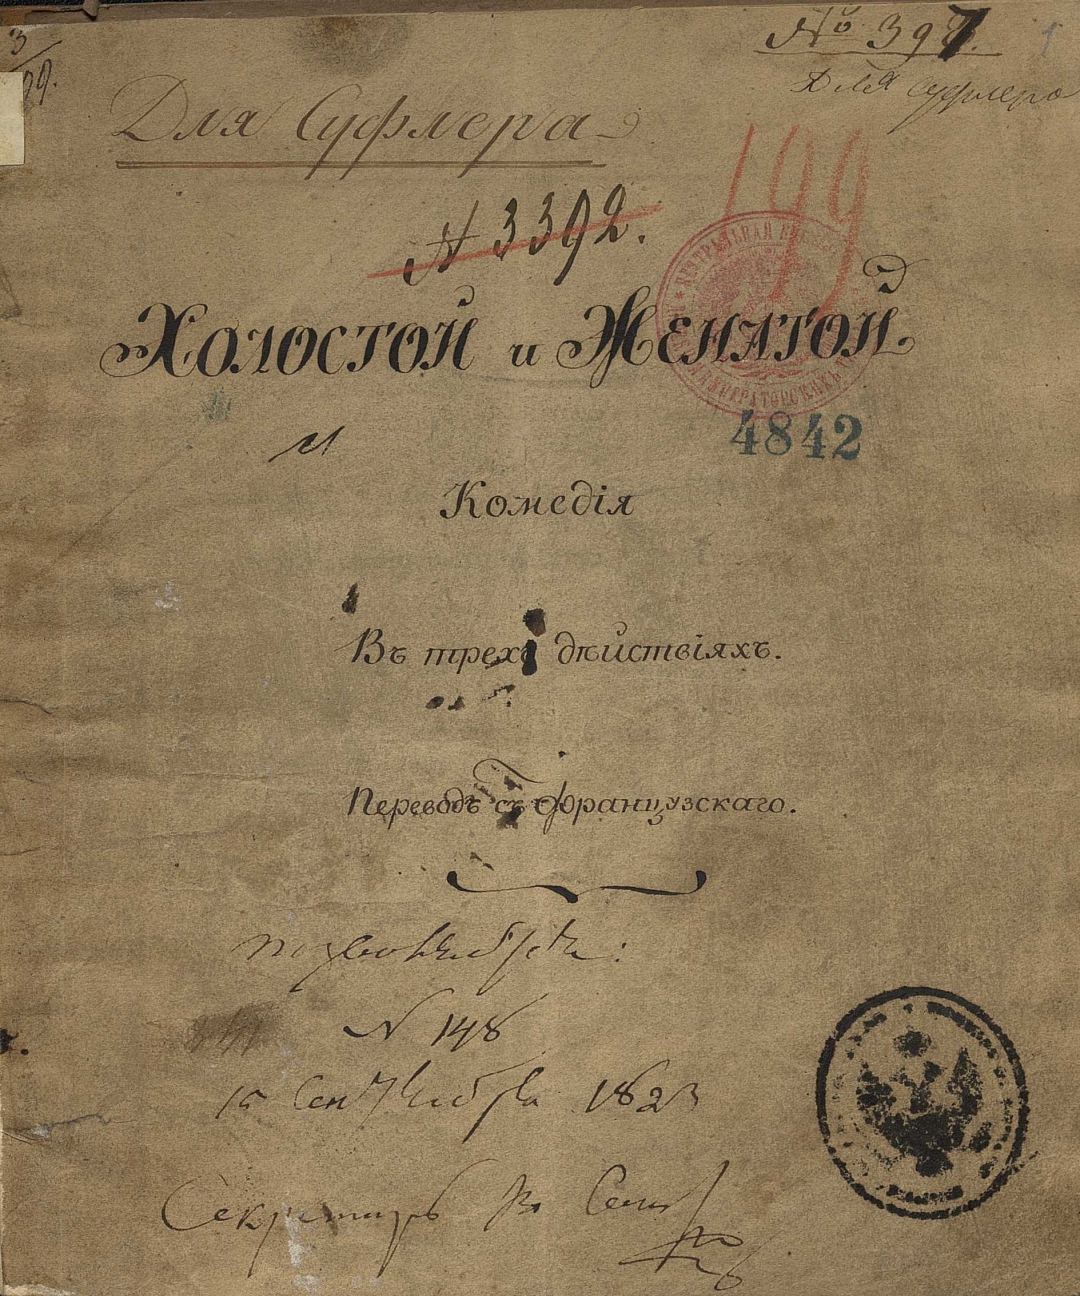 3/99.
№ 397.
Для суфлера
Для Суфлера
199
N 3392.
ЦЕНТРАЛЬНАЯ
ИМПЕРАТОРСКИХЪ
Холостой и Женатой
4842
Комедія
Въ трехъ дѣйствіяхъ.
Переводъ съ Французскаго.
N 148
15 Сентября 1823
Секретарь